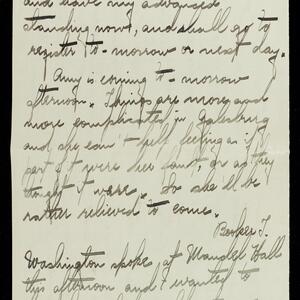 and have my advanced
standing now, and shall go to
register to-morrow or next day.
Amy is coming to-morrow
afternoon. Things are more and
more complicated in Galesburg
and she can't help feeling as if
part of it were her fault, or as they
thought it were. So she'll be
rather relieved to come.
Booker T.
Washington spoke at Mandel Hall
this afternoon and I wanted to